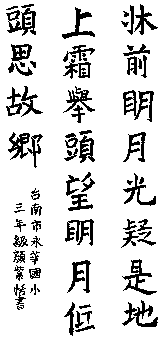 牀前明月光疑是地
上霜舉頭望明月低
頭思故鄉
台南市永華國小
三年級顏紫恬書